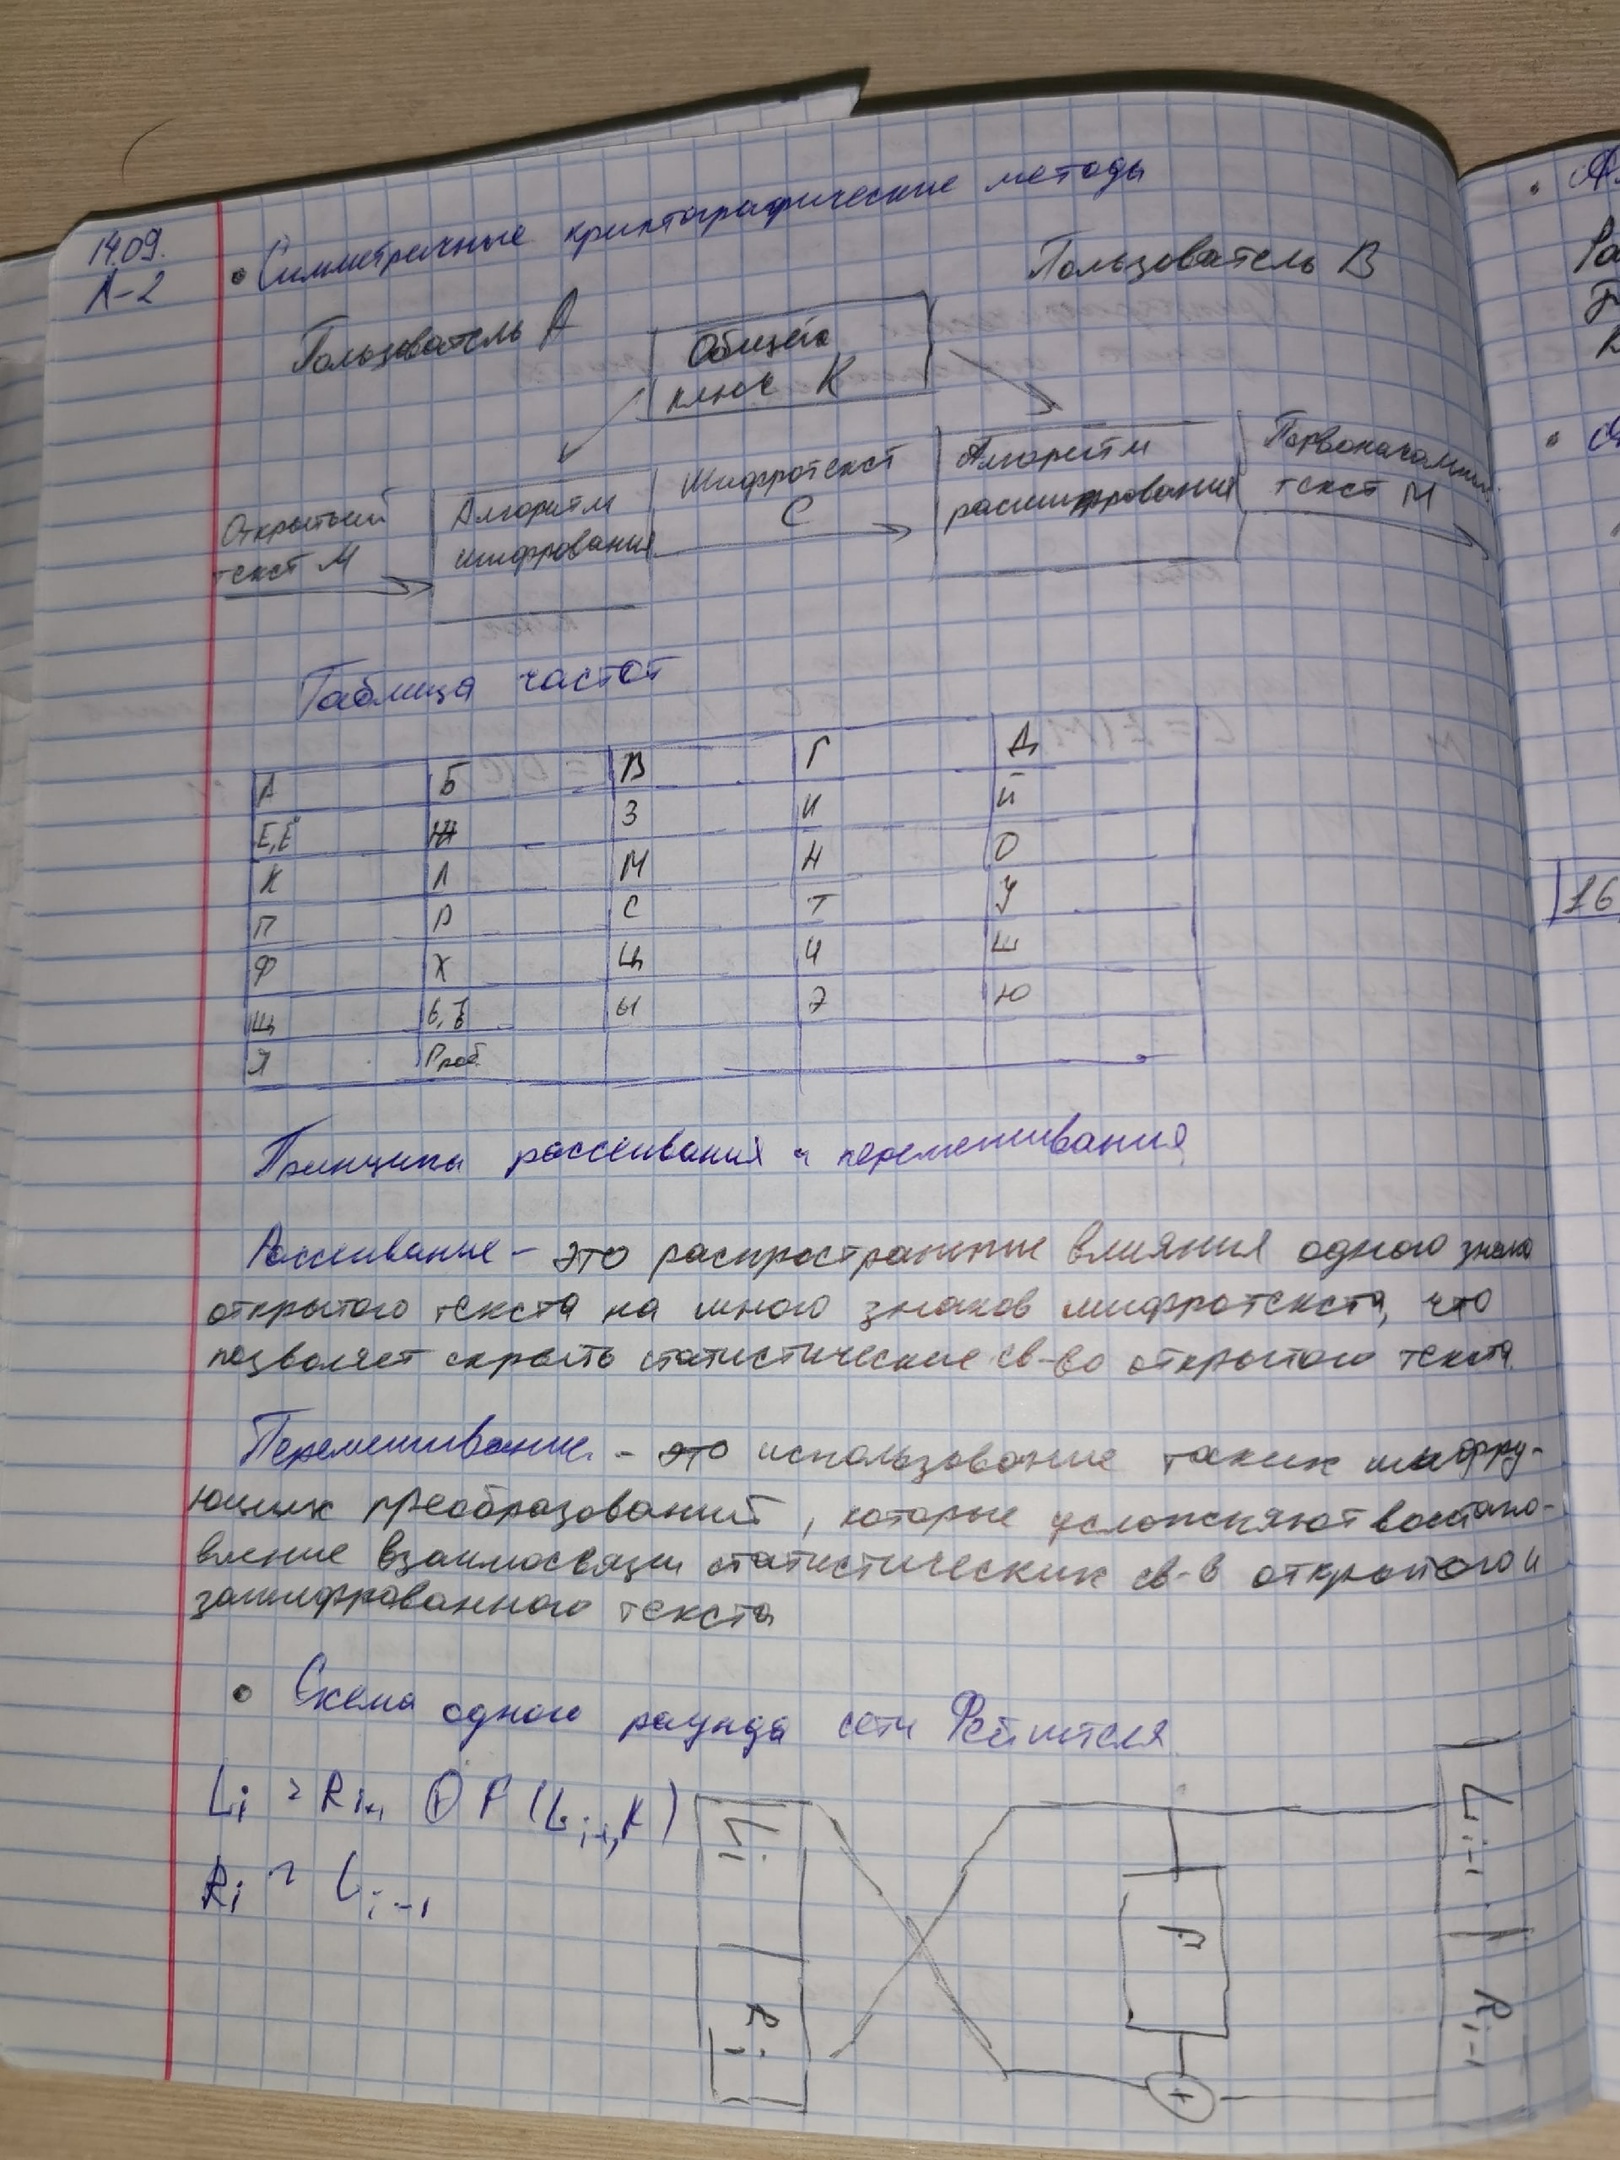 14.09.
Л-2
• Симметричные криптографические методы
Пользователь А
Пользователь В
Общий
ключ К
Открытый
текст М
Алгоритм
шифрования
Шифротекст
С
Алгоритм
расшифрования
Первоначальный
текст М
Таблица частот
А Б В Г Д
Е,Ё Ж З И Й
К Л М Н О
П Р С Т У
Ф Х Ц Ч Ш
Щ Ь,Ъ Ы Э Ю
Я Проб.
Принципы рассеивания и перемешивания
Рассеивание - это распространение влияния одного знака
открытого текста на много знаков шифротекста, что
позволяет скрыть статистические св-во открытого текста.
Перемешивание - это использование таких шифру-
ющих преобразований, которые усложняют восстано-
вление взаимосвязи статистических св-в открытого и
зашифрованного текста
• Схема одного раунда сети Фейштеля
Li = Ri-1 ⊕ F (Li-1, K)
Ri = Li-1
Li
Ri
F
+
Li-1
Ri-1
16